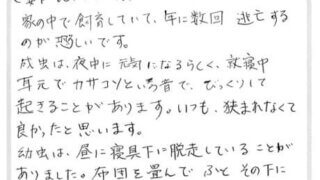 家の中で飼育していて、年に数回 逃亡する
のが恐いです。
成虫は、夜中に元気になるらしく、就寝中
耳元でカサコソという音で、びっくりして
起きることがあります。いつも、挟まれなくて
良かったと思います。
幼虫は、昼に寝具下に脱走していることが
ありました。布団を畳んで ふと その下に